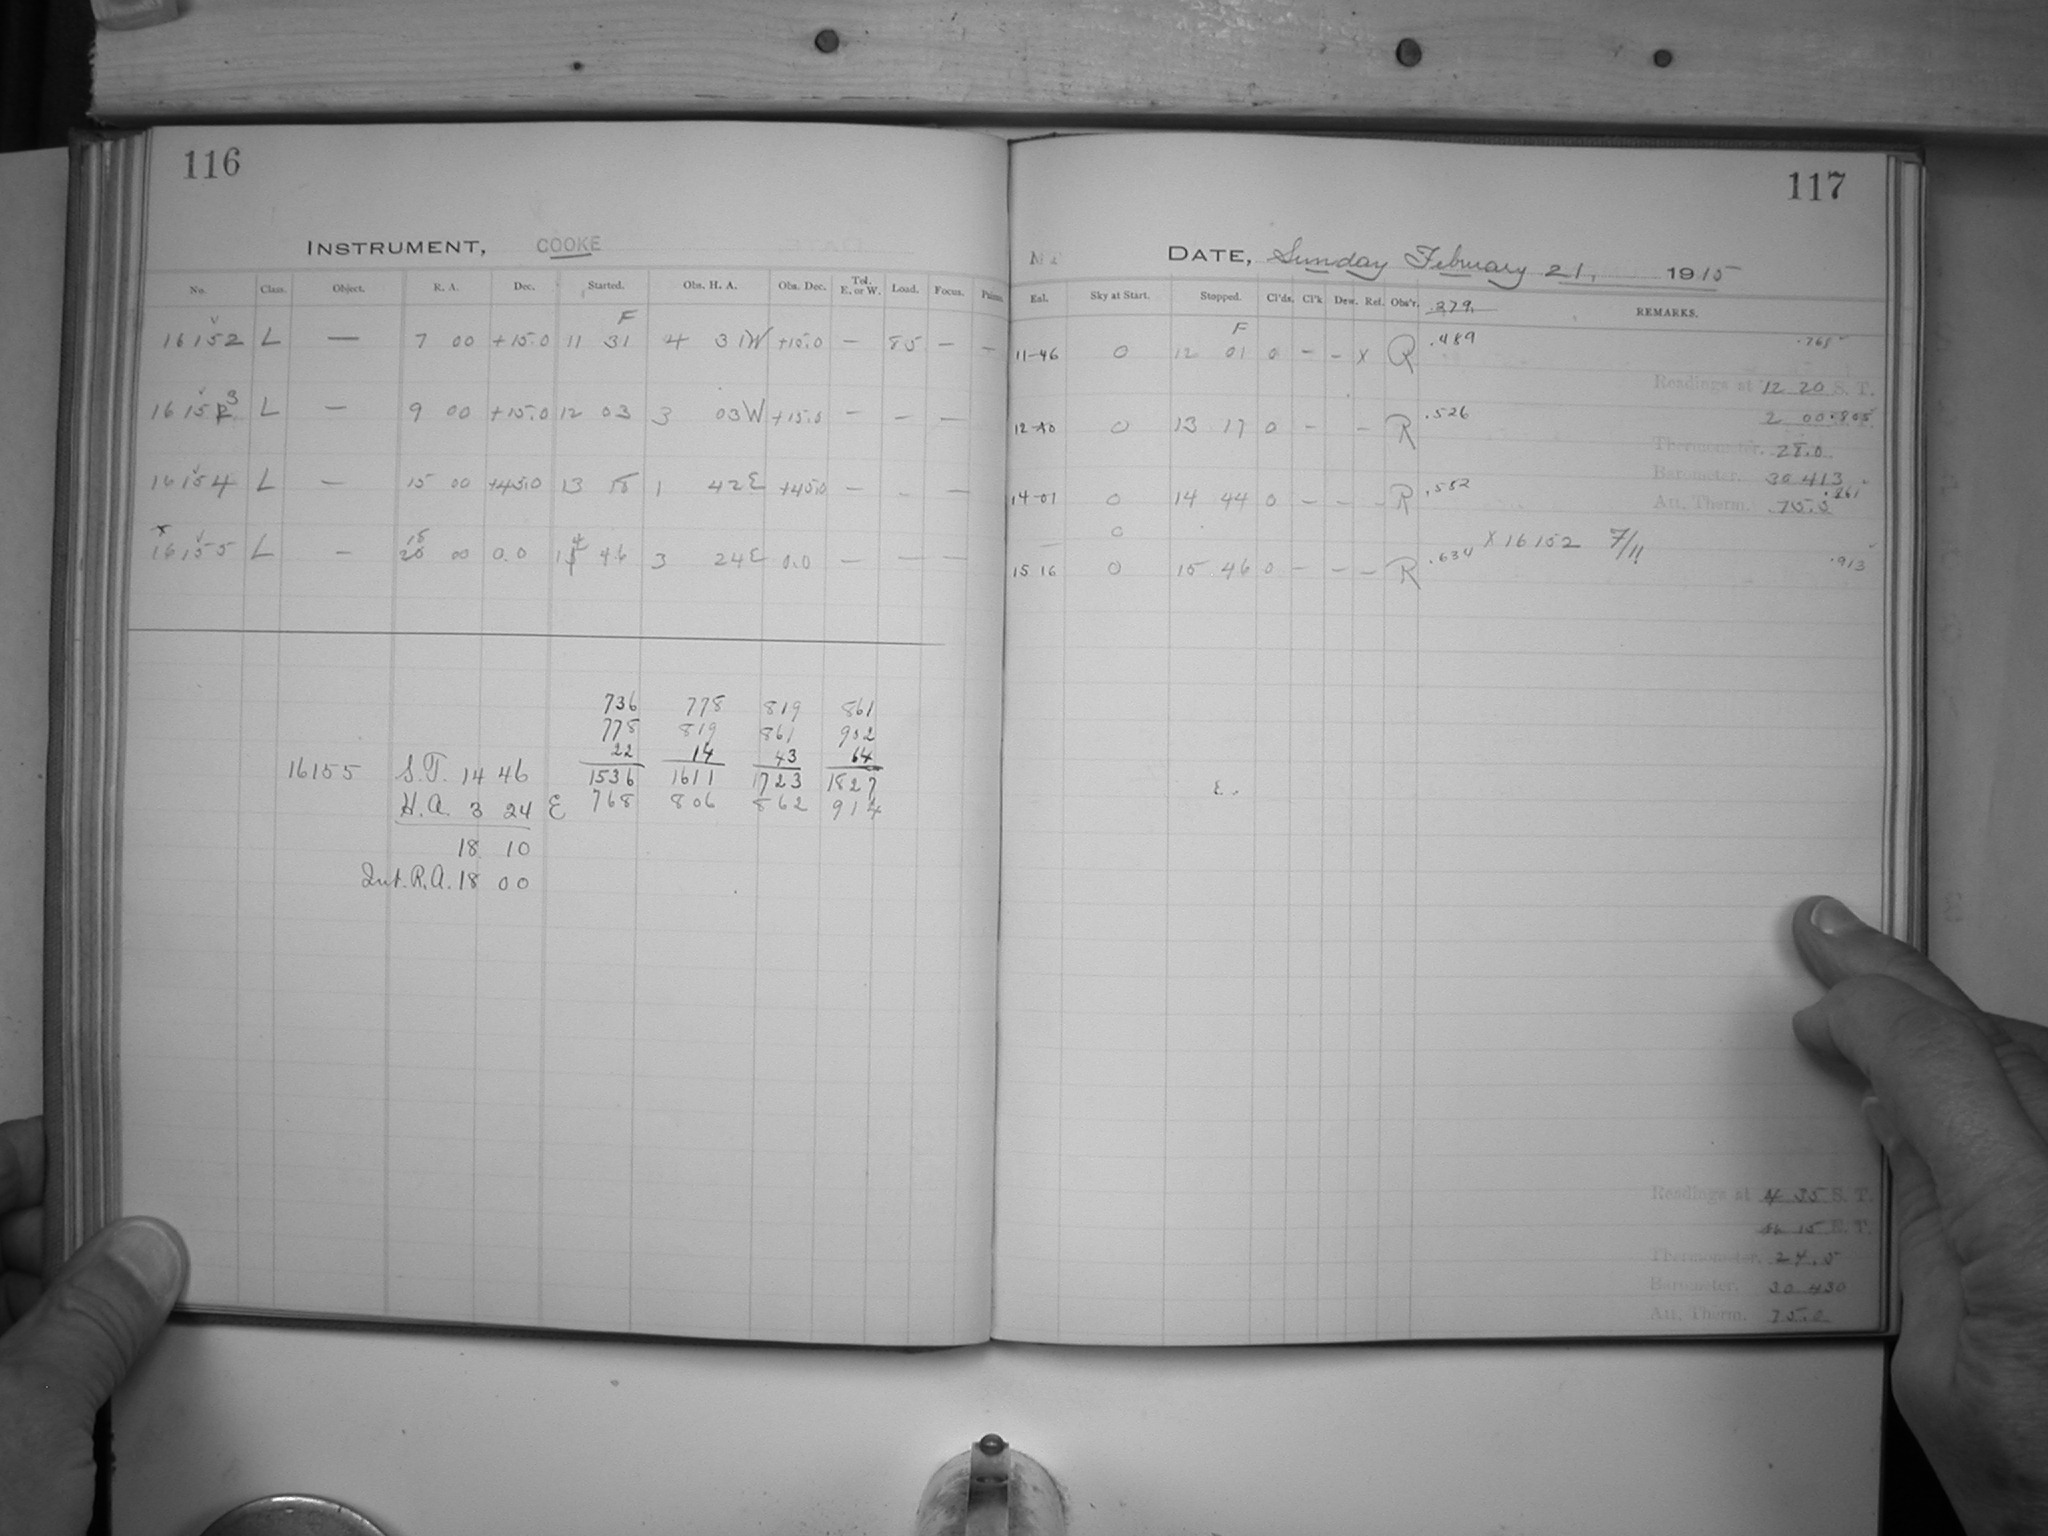 116
INSTRUMENT, COOKE
No. Class. Object. R. A. Dec. Started. Obs. H. A. Obs. Dec. Tel. E. or W. Load. Focus.
F
16152 L — 7 00 +15.0 11 31 4 31W +15.0 — 85 — —
16153 L — 9 00 +15.0 12 03 3 03W +15.0 — — —
16154 L — 15 00 +45.0 13 18 1 42E +45.0 — - —
x 16155 L — 18 00 0.0 14 46 3 24E 0.0 — — —
736 778 819 861
778 819 861 902
22 14 43 64
16155 S.T. 14 46 1536 1611 1723 1827
H.A. 3 24 E 768 806 862 914
18 10
Int. R.A. 18 00
117
DATE, Sunday February 21, 1915
Eal. Sky at Start. Stopped. Cl'ds. Cl'k Dew. Rel. Obs'r. .379 REMARKS.
F
11-46 0 12 01 0 – – x R .489 .768
Readings at 12 20 S. T.
12-40 0 13 17 0 – – R .526 2 00 .805
Thermometer.
Barometer. 30 413
14-01 0 14 44 0 – – – R .582 .861
Att. Therm. 75.5
x 16152 7/11
15 16 0 15 46 0 – – – R .634 .913
E.
Readings at 4 35 S. T.
15 E. T.
Thermometer. 24.5
Barometer. 30 430
Att. Therm. 75.0